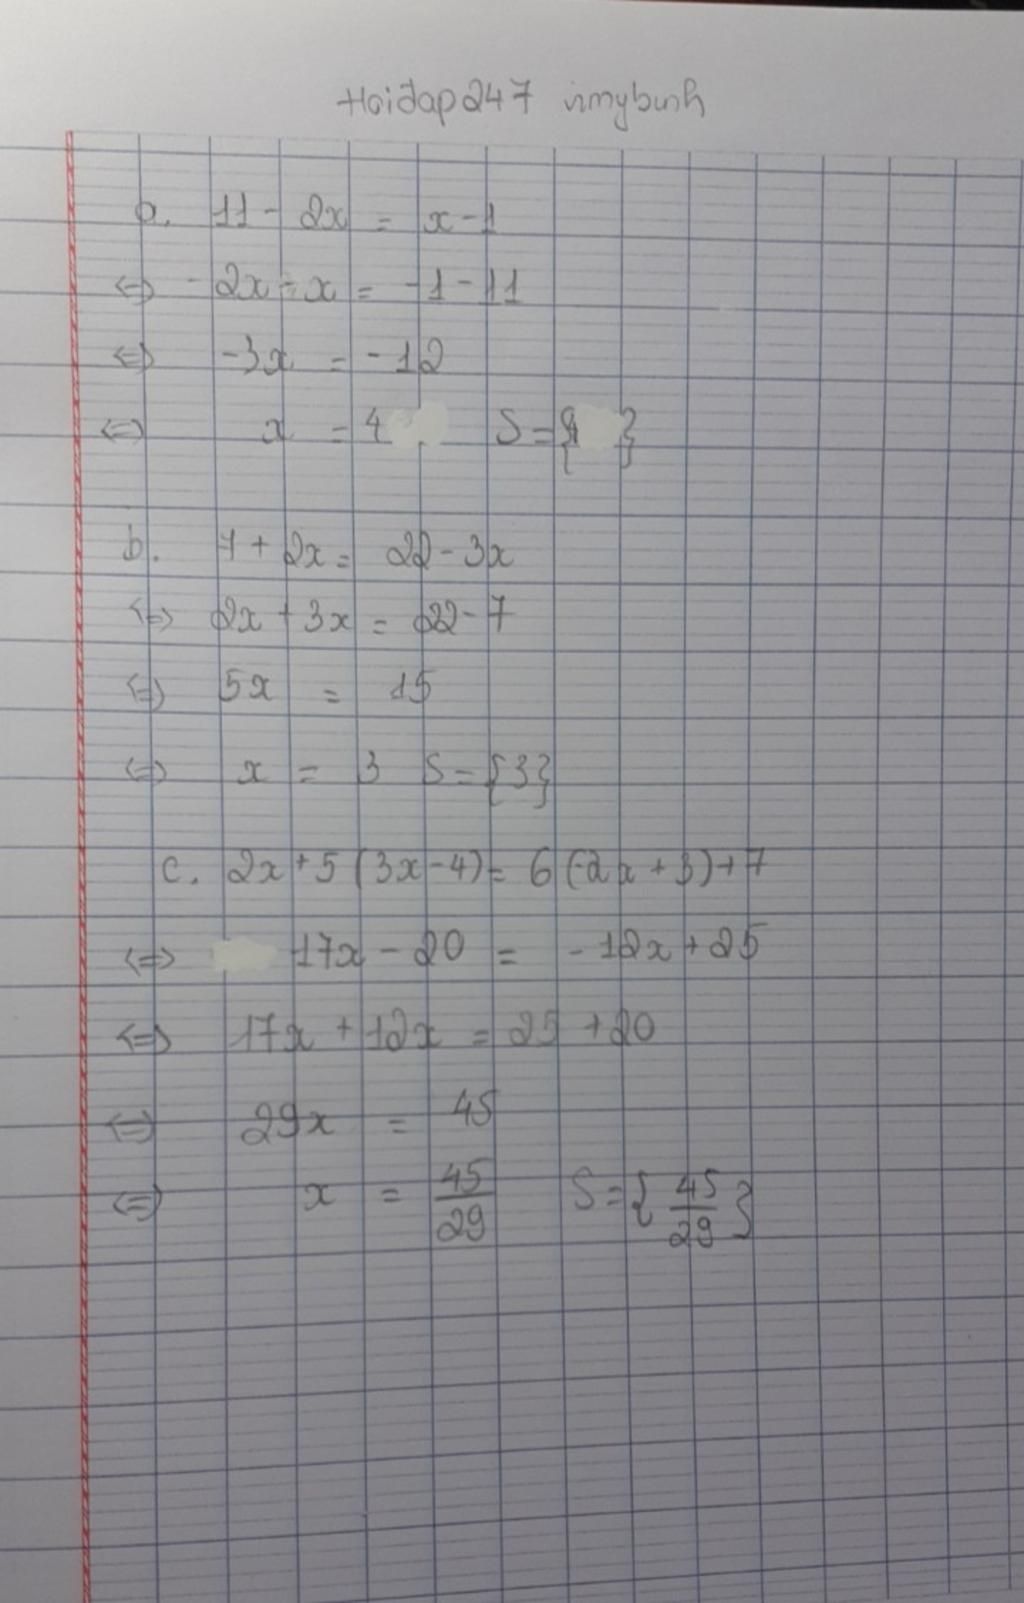 Hoidap247 iimybunh
a. 11 - 2x = x - 1
<=> -2x - x = -1 - 11
<=> -3x = -12
<=> x = 4 S = {4}
b. 7 + 2x = 22 - 3x
<=> 2x + 3x = 22 - 7
<=> 5x = 15
<=> x = 3 S = {3}
c. 2x + 5 (3x - 4) = 6 (-2x + 3) + 7
<=> 17x - 20 = -12x + 25
<=> 17x + 12x = 25 + 20
<=> 29x = 45
<=> x = 45/29 S = {45/29}